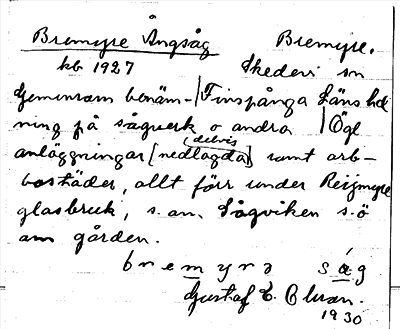 Bremyre Ångsåg Bremyre.
kb 1927 Skedevi sn
Gemensam benäm- Finspånga Läns hd
ning på sågverk o andra Ögl
delvis
anläggningar [nedlagda] samt arb-
bostäder, allt förr under Reijmyre
glasbruk, s. an. Sågviken s.ö
om gården.
bremyrə såg
Gustaf E. Olsson.
1930